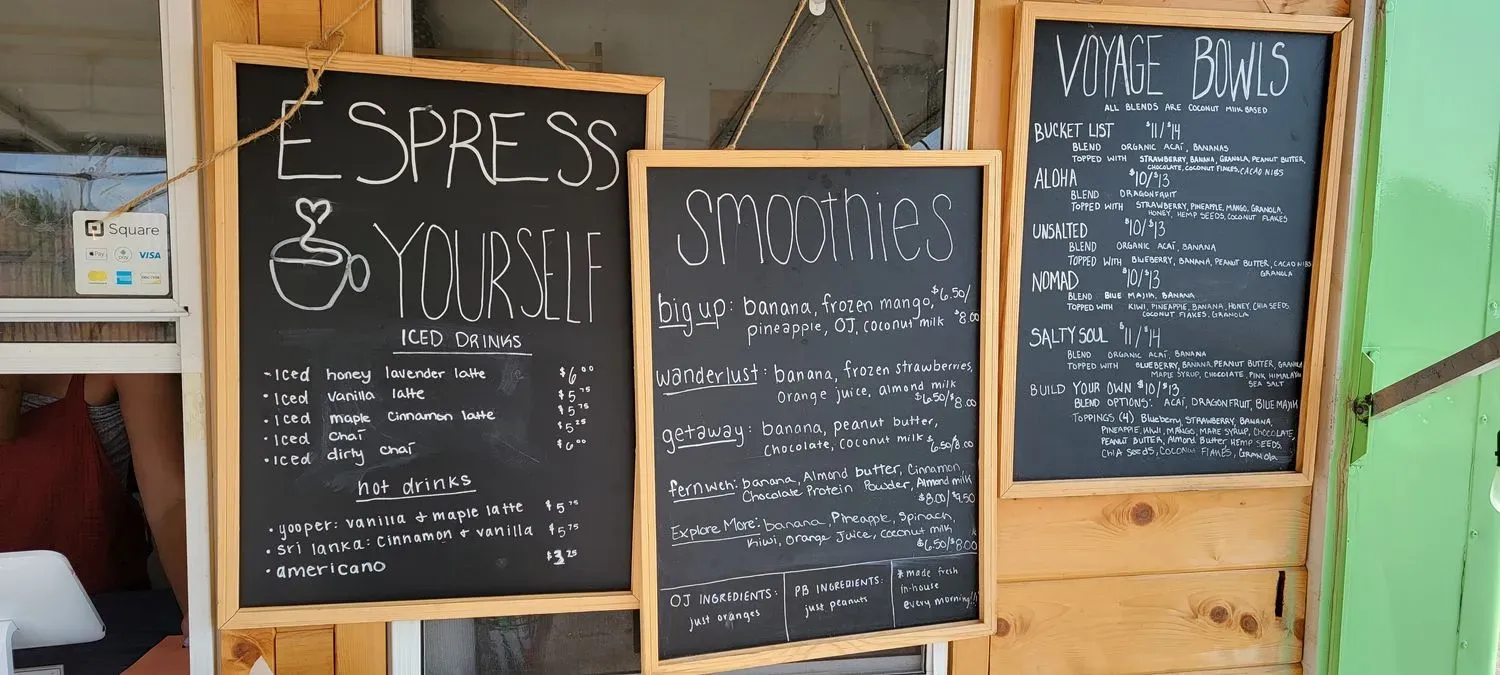 Square
Pay
pay
VISA
ESPRESS
YOURSELF
ICED DRINKS
• Iced honey lavender latte $6.00
• Iced vanilla latte $5.75
• Iced maple cinnamon latte $5.75
• Iced chai $5.25
• Iced dirty chai $6.00
hot drinks
• yooper: vanilla & maple latte $5.75
• sri lanka: cinnamon & vanilla $5.75
• americano $3.25
smoothies
big up: banana, frozen mango, $6.50/
pineapple, OJ, coconut milk $8.00
wanderlust: banana, frozen strawberries,
orange juice, almond milk
$6.50/$8.00
getaway: banana, peanut butter,
chocolate, coconut milk $6.50/8.00
fernweh: banana, Almond butter, Cinnamon,
Chocolate Protein Powder, Almond milk
$8.00/$9.50
Explore More: banana, Pineapple, Spinach,
Kiwi, Orange Juice, coconut milk
$6.50/$8.00
OJ INGREDIENTS:
just oranges
PB INGREDIENTS:
just peanuts
* made fresh
in-house
every morning!!!
VOYAGE BOWLS
ALL BLENDS ARE COCONUT MILK BASED
BUCKET LIST $11/$14
BLEND ORGANIC ACAÍ, BANANAS
TOPPED WITH STRAWBERRY, BANANA, GRANOLA, PEANUT BUTTER,
CHOCOLATE, COCONUT FLAKES, CACAO NIBS
ALOHA $10/$13
BLEND DRAGONFRUIT
TOPPED WITH STRAWBERRY, PINEAPPLE, MANGO, GRANOLA,
HONEY, HEMP SEEDS, COCONUT FLAKES
UNSALTED $10/$13
BLEND ORGANIC ACAÍ, BANANA
TOPPED WITH BLUEBERRY, BANANA, PEANUT BUTTER, CACAO NIBS
GRANOLA
NOMAD $10/$13
BLEND BLUE MAJIK, BANANA
TOPPED WITH KIWI, PINEAPPLE, BANANA, HONEY, CHIA SEEDS,
COCONUT FLAKES, GRANOLA
SALTY SOUL $11/$14
BLEND ORGANIC ACAÍ, BANANA
TOPPED WITH BLUEBERRY, BANANA, PEANUT BUTTER, GRANOLA
MAPLE SYRUP, CHOCOLATE, PINK HIMALAYAN
SEA SALT
BUILD YOUR OWN $10/$13
BLEND OPTIONS: ACAÍ, DRAGONFRUIT, BLUE MAJIK
TOPPINGS (4) Blueberry, STRAWBERRY, BANANA,
PINEAPPLE, KIWI, MANGO, MAPLE SYRUP, CHOCOLATE,
PEANUT BUTTER, Almond Butter, HEMP SEEDS,
CHIA SEEDS, COCONUT FLAKES, GRANOLA